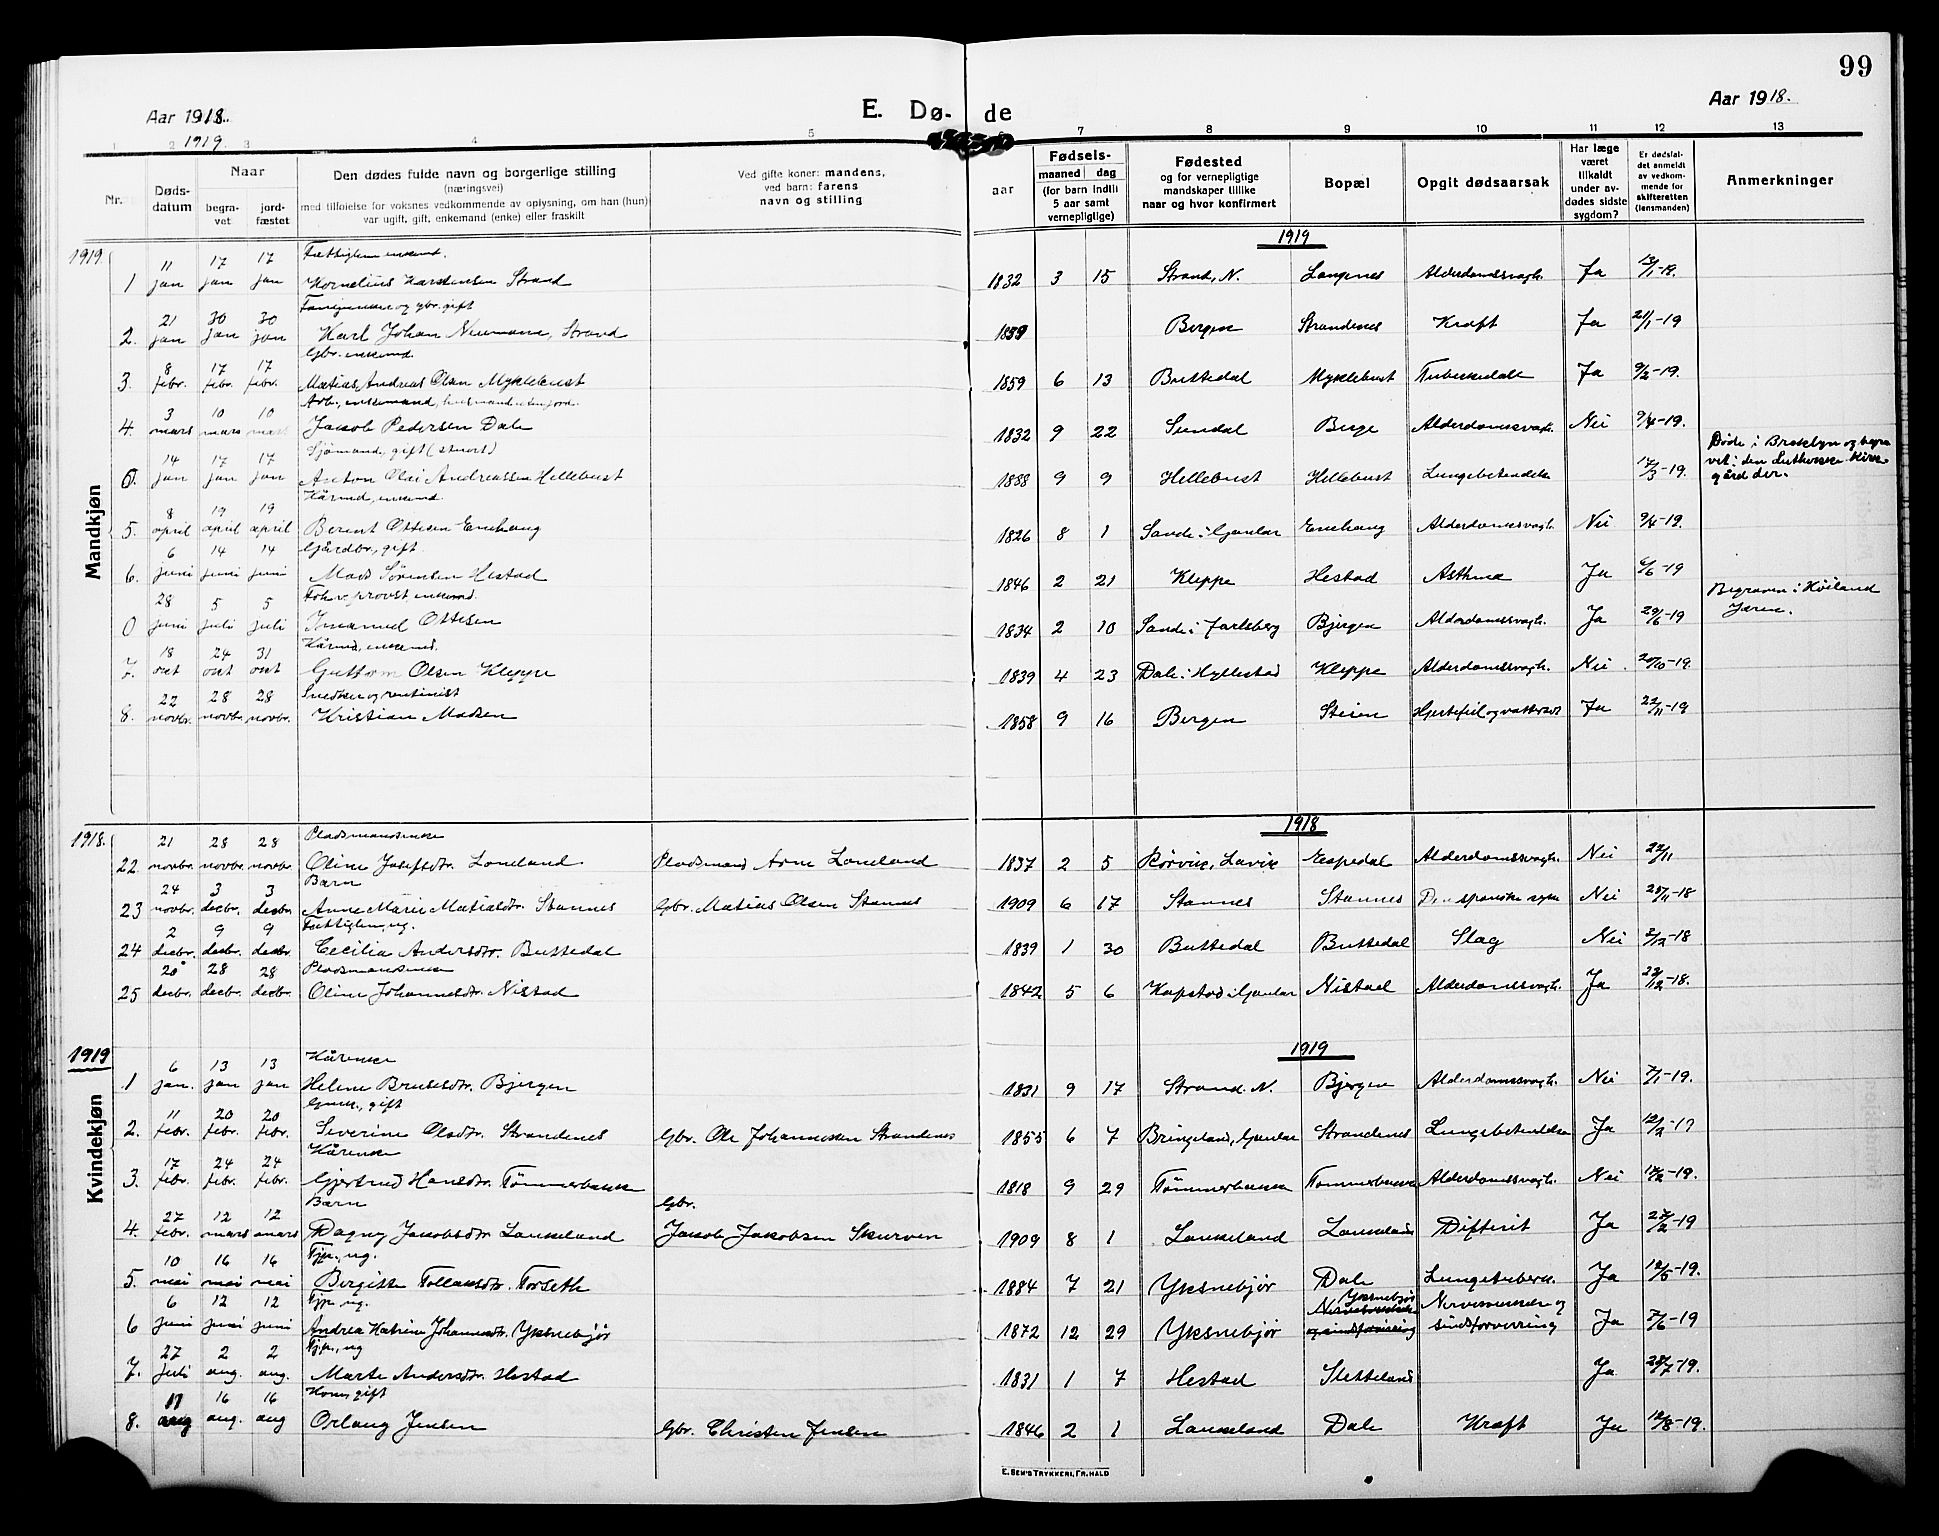 99
Aar 1918.
1919.
E. Dø- de
Aar 1918.
1 2 3 4 5 7 8 9 10 11 12 13
Nr.
Døds-datum
Naar
begra-vet
jord-fæstet
Den dødes fulde navn og borgerlige stilling
(næringsvei)
med tilføielse for voksnes vedkommende av oplysning, om han (hun)
var ugift, gift, enkemand (enke) eller fraskilt
Ved gifte koner: mandens,
ved barn: farens
navn og stilling
Fødsels-
aar
maaned dag
(for barn indtil
5 aar samt
vernepligtige)
Fødested
og for vernepligtige
mandskaper tillike
naar og hvor konfirmert
Bopæl
Opgit dødsaarsak
Har læge
været
tilkaldt
under av-
dødes sidste
sygdom?
Er dødsfal-
det anmeldt
av vedkom-
mende for
skifteretten
(lensmanden)
Anmerkninger
Mandkjøn
1919 1919
Fattiglem enkemd.
1 11 jan 17 jan 17 jan Kornelius Karstensen Strand 1832 3 15 Strand, N. Langenes Alderdomssvagh. Ja 13/1-19.
gbr. gift
2. 21 jan 30 jan 30 jan Karl Johan Neumann, Strand Bergen Strandenes Kræft Ja 21/1-19
Gbr. enkemd.
3. 8 febr. 17 febr. 17 febr. Matias Andreas Olsen Myklebust 1859 6 13 Buttedal Myklebust Tuberkulose Ja 9/2-19.
enkemand,
4. 3 mars 10 mars 10 mars Jacob Pedersen Dale 1832 9 22 Sundal Berge Alderdomssvagh. Nei 9/4-19.
Sjømand, gift (stuert)
0. 14 jan 17 jan 17 jan Anton Olai Andreassen Hellebust 1888 9 9 Hellebust Hellebust Lungebetendelse 17/3-19. Døde i Brooklyn og begra
vet i den Lutherske Kirke
gård der.
Kårmd, enkemd.
5. 8 april 19 april 19 april Berent Ottesen Enehaug 1826 8 1 Sande i Gaular Enehaug Alderdomssvagh. Nei 9/4-19.
Gårdbr., gift.
6. 6 juni 14 juni 14 juni Mads Sørensen Hestad 1846 2 21 Kleppe Hestad Asthma Ja 6/6-19
provst enkemd.
0 28 juni 5 juli 5 juli Imanuel Ottesen 1834 2 10 Sande i Jarlsberg Bjergen Alderdomssvagh. Ja 29/6-19 Begraven i Høiland
Jæren.
Kårmd, enkemd.
7. 18 okt 24 okt 31 okt Guttom Olsen Kleppe 1839 4 23 Dale i Hyllestad Kleppe Alderdomssvagh. Nei 20/10-19.
Snedker og rentenist
8. 22 novbr. 28 novbr. 28 novbr. Kristian Madsen 1858 9 16 Bergen Steien Hjertefeil og vattersot Ja 22/11-19
1918. 1918
Pladsmandsenke
22 21 novbr. 28 novbr. 28 novbr. Oline Josefsdtr. Loneland Pladsmand Arne Loneland 1837 2 5 Rørvik, Lavik Espedal Alderdomssvagh. Nei 22/11
Barn
23 24 novbr. 3 decbr. 3 decbr. Anne Marie Matiasdtr. Stannes Gbr. Matias Olsen Stannes 1909 6 17 Stannes Stannes Den spanske syke Nei 25/11-18
Fattiglem, ug.
24 2 decbr. 9 decbr. 9 decbr. Cecilia Andersdtr. Buttedal 1839 1 30 Buttedal Buttedal Slag Nei 2/12-18
Pladsmandsenke
25 20 decbr. 28 decbr. 28 decbr. Oline Johannesdtr. Nistad 1842 5 6 Kapstad i Gaular Nistad Alderdomssvagh. Ja 22/12-18.
Kvindekjøn
1919 1919
Kårenke
1 6 jan. 13 jan 13 jan Helene Brusesdtr. Bjergen 1831 9 17 Strand. N. Bjergen Alderdomssvagh. Nei 7/1-19.
gift
2. 11 febr. 20 febr. 20 febr. Severine Olsdtr. Strandenes Gbr. Ole Johannessen Strandenes 1855 6 7 Bringeland, Gaular Strandenes Lungebetendelse Ja 12/2-19
Kårenke
3. 17 febr. 24 febr. 24 febr. Gjertrud Hansdtr. Tømmerbakke 1818 9 29 Tømmerbakke Tømmerbakke Alderdomssvagh. Nei 17/2-19.
Barn Gbr.
4. 27 febr. 12 mars 12 mars Dagny Jacobsdtr. Laukeland Jacob Jakobsen Skurven 1909 8 1 Laukeland Laukeland Difterit Ja 27/2-19
Tjp., ug.
5. 10 mai 16 mai 16 mai Bergitte Tollaksdtr. Forseth 1884 7 21 Yksnebjør Dale Lungetuberk. Ja 12/5-19.
Tjp. ug.
6 6 juni 12 juni 12 juni Andrea Katrine Johannesdtr. Yksnebjør 1872 12 29 Yksnebjør Yksnebjør Nervesvækkelse og
sindsforvirring Ja 7/6-19
Tjp., ug
7. 27 juli 2 aug. 2 aug. Marte Andersdtr. Hestad 1831 1 7 Hestad Sletteland Ja 28/7-19.
Kone, gift
8. 11 aug 16 aug. 16 aug Orlaug Jensen Gbr. Christen Jensen 1846 2 1 Laukeland Dale Kræft Ja 12/8-19.
E. SEM'S TRYKKERI, FR.HALD